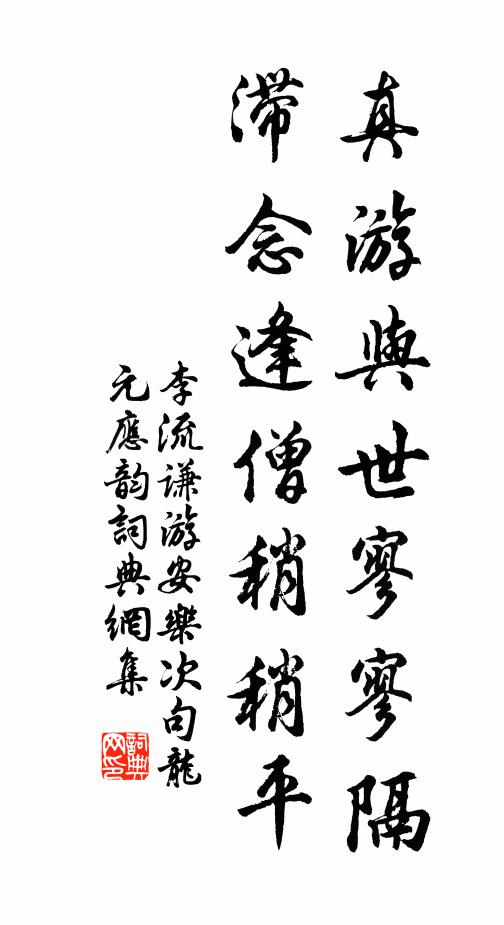 真游與世寥寥隔
滞念逢僧稍稍平
李流谦游安樂次句龍
元應韵詞典網集
詞典網印